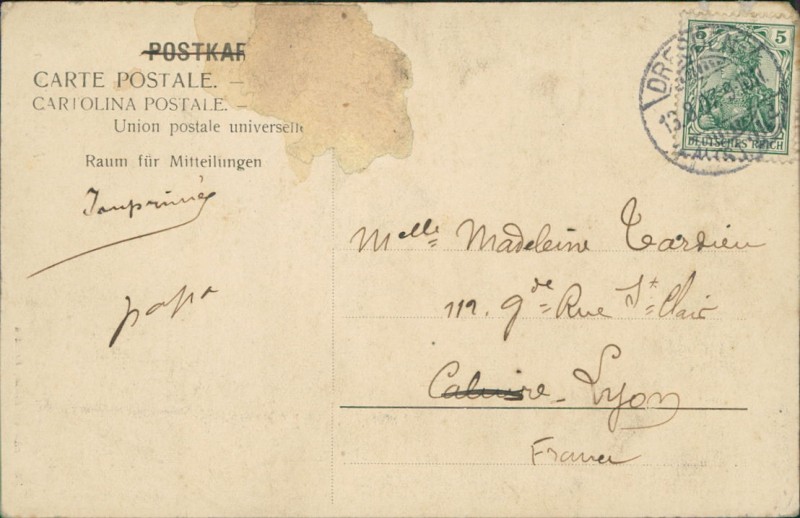 POSTKAR
CARTE POSTALE. —
CARTOLINA POSTALE. —
Union postale universelle
Raum für Mitteilungen
Imprimés
papa
5 5
DEUTSCHES REICH
DRESDEN
ALTST.
Melle Madeleine Tardieu
112. gde Rue St Clair
Caluire - Lyon
France